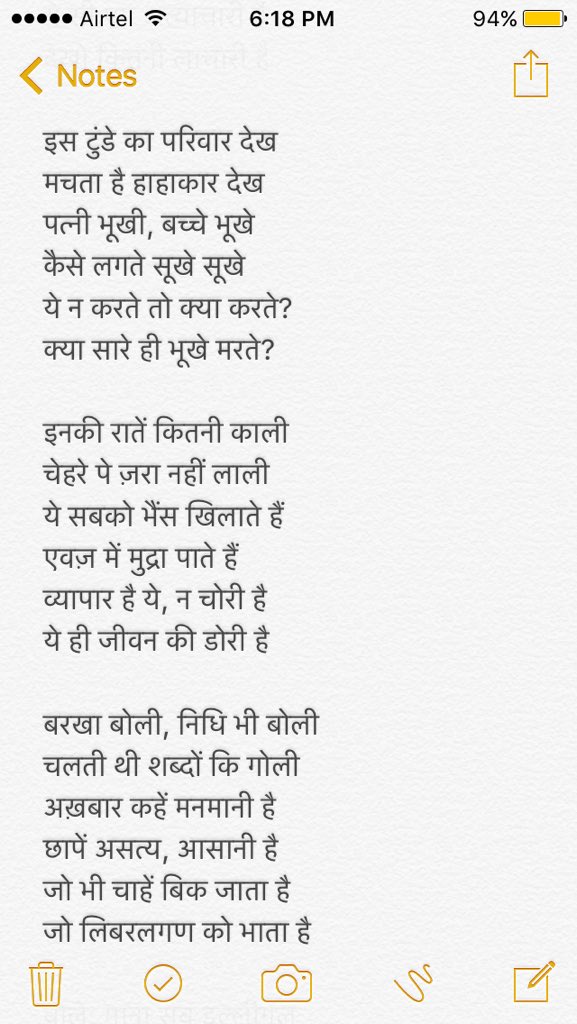 Airtel 6:18 PM 94%
Notes
इस टुंडे का परिवार देख
मचता है हाहाकार देख
पत्नी भूखी, बच्चे भूखे
कैसे लगते सूखे सूखे
ये न करते तो क्या करते?
क्या सारे ही भूखे मरते?
इनकी रातें कितनी काली
चेहरे पे ज़रा नहीं लाली
ये सबको भैंस खिलाते हैं
एवज़ में मुद्रा पाते हैं
व्यापार है ये, न चोरी है
ये ही जीवन की डोरी है
बरखा बोली, निधि भी बोली
चलती थी शब्दों कि गोली
अख़बार कहें मनमानी है
छापें असत्य, आसानी है
जो भी चाहें बिक जाता है
जो लिबरलगण को भाता है